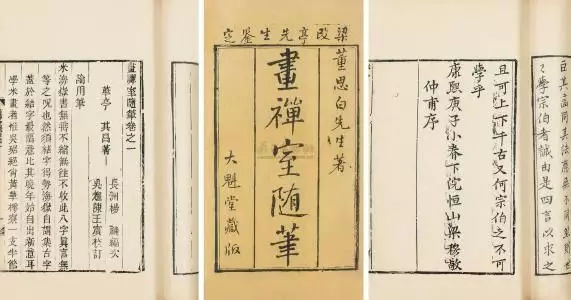 畫禪室隨筆卷之一
華亭 其昌著
長洲楊
論用筆
米海嶽書無垂不縮無往不收此八字真言無
等之咒也然須結字得勢海嶽自謂集古字
蓋於結字最留意比其晚年始自出新意耳
學米書者惟吳琚絕肖黃華樗寮一支半節
梁段亭先生鑒定
董思白先生著
畫禪室隨筆
大魁堂藏版
學宗伯者誠由是四言以求之
且可上下千古又何宗伯之不可
學乎
康熙庚子小春下浣恒山梁穆敬
仲甫序